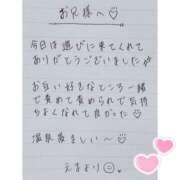 お兄様へ♡
今日は遊びに来てくれて
ありがとうございました
お互い好きなところ一緒
で責めて責められて気持
ちよくなれて良かった♡
温泉羨ましい〜♡
えまより☺